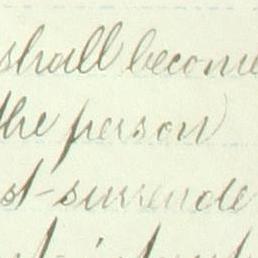 shall become
the person)
st-surrende